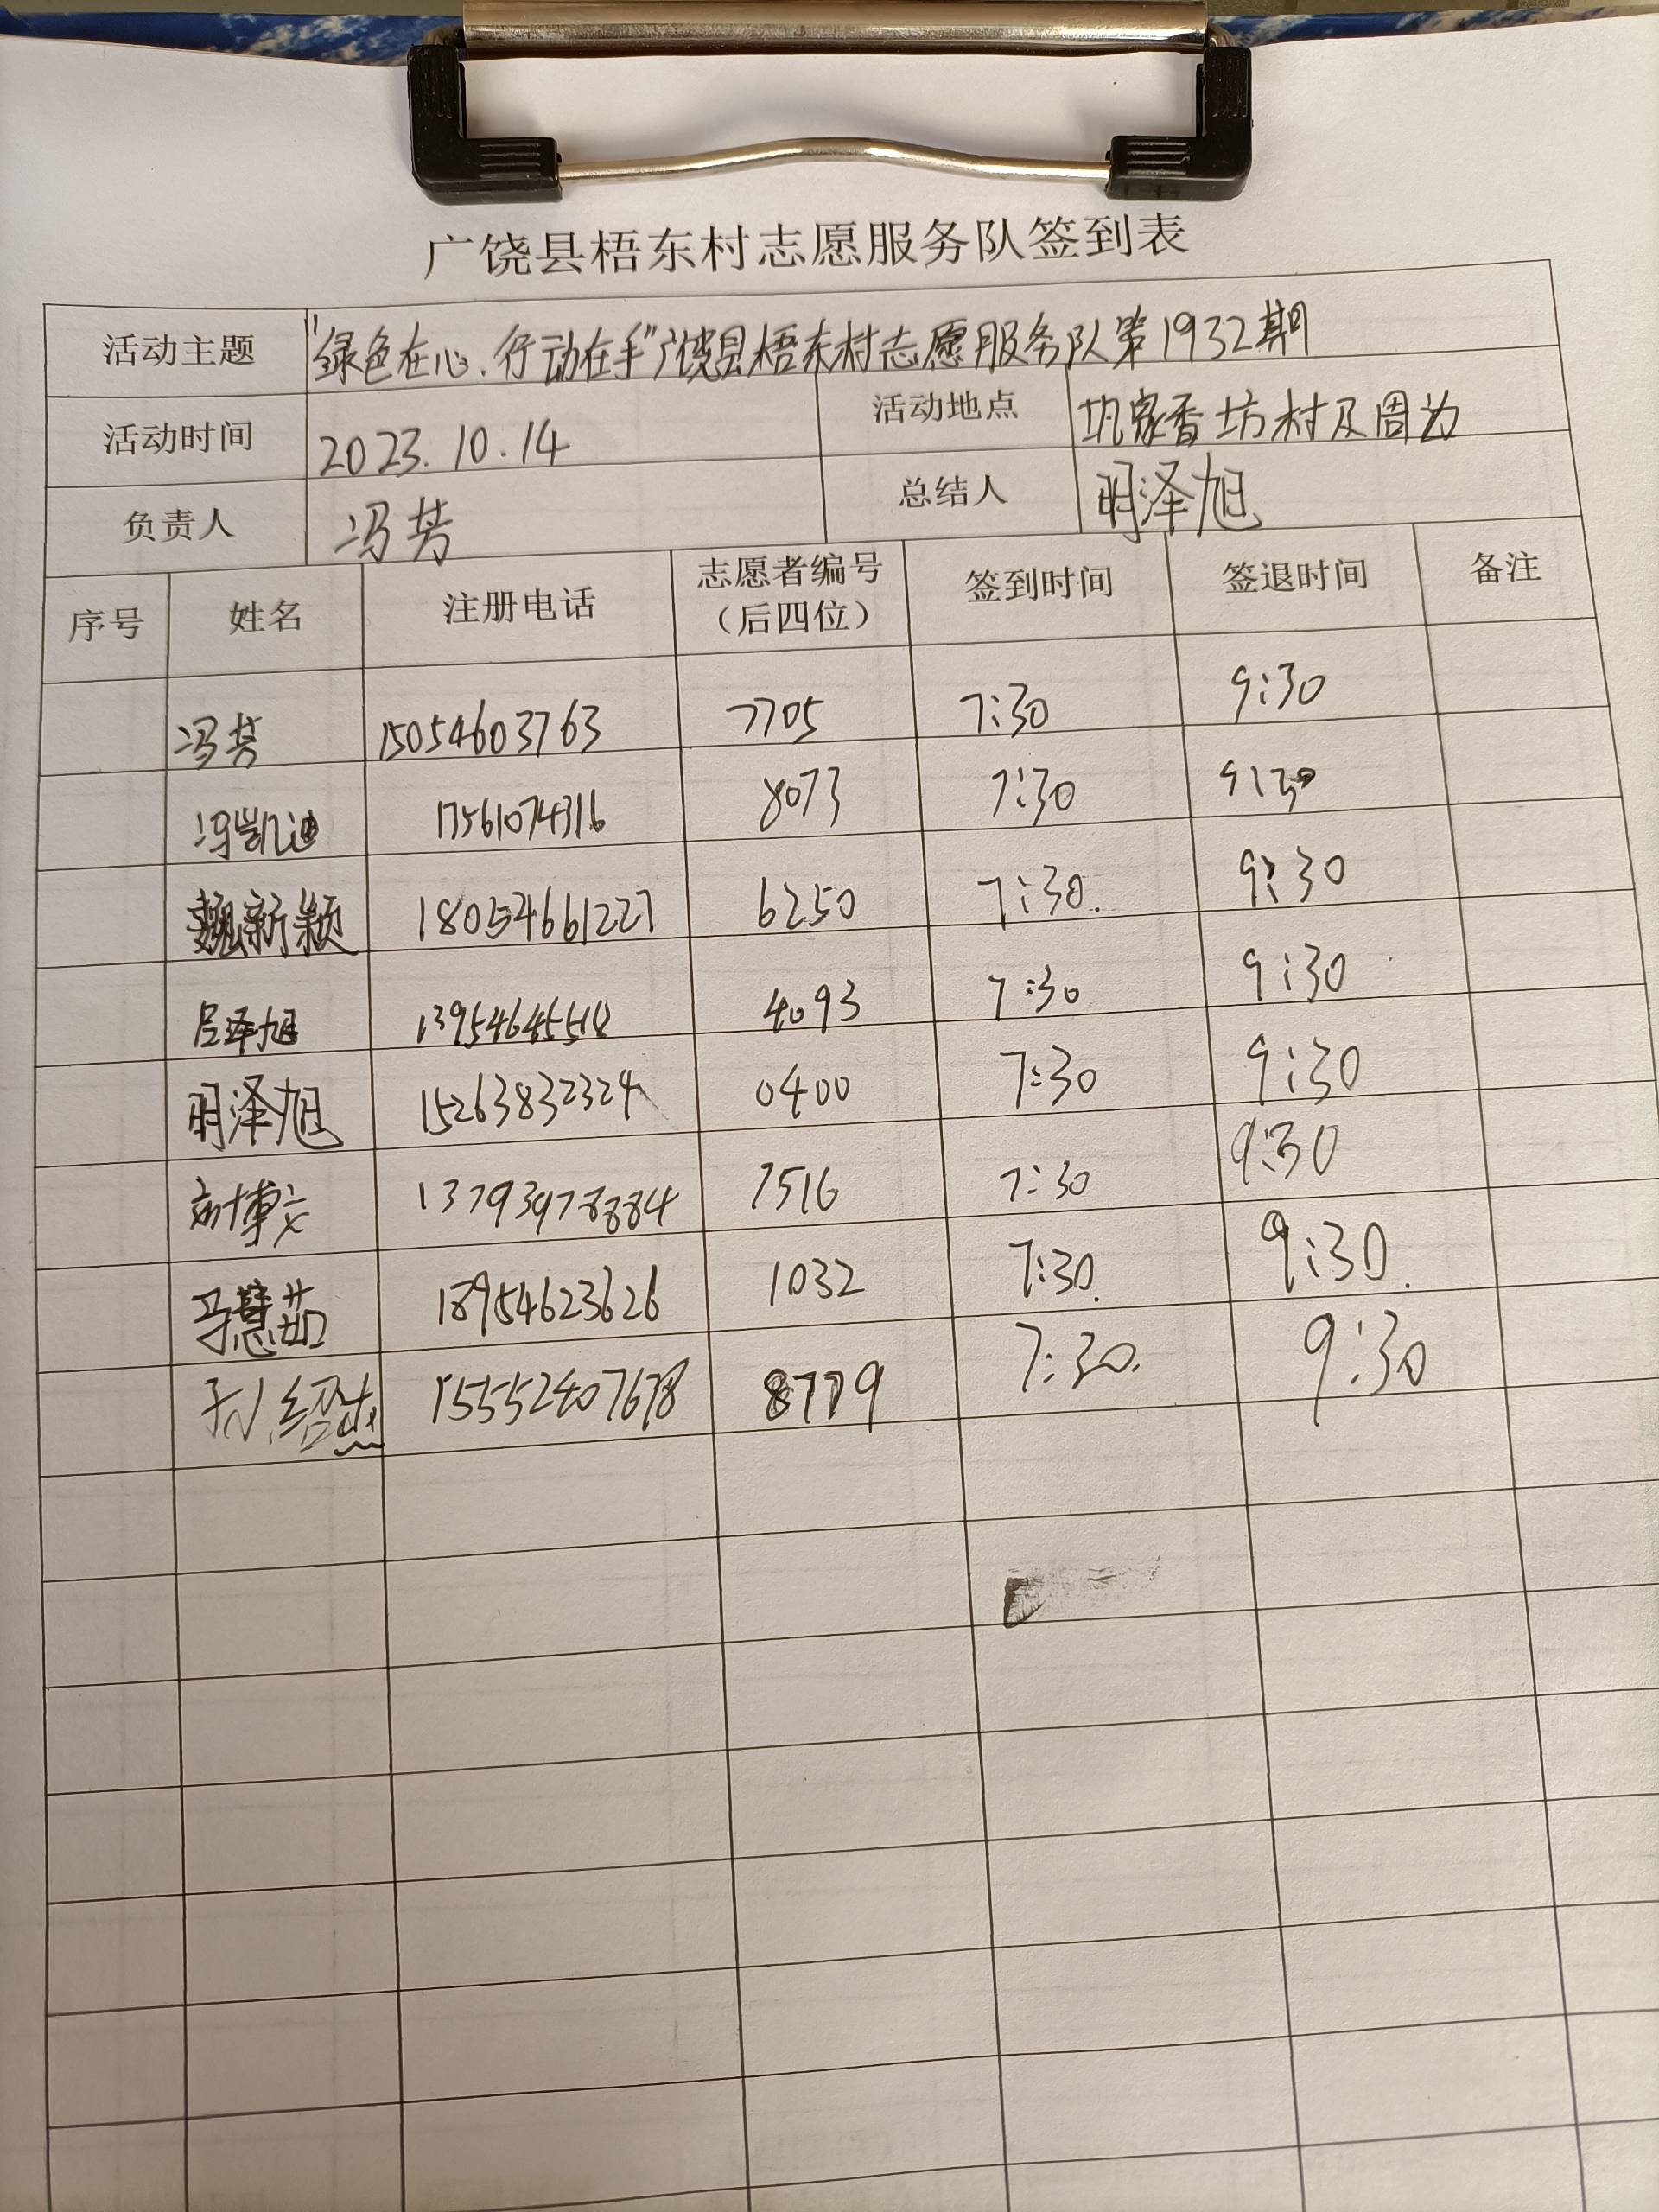 广饶县梧东村志愿服务队签到表
活动主题 "绿色在心、行动在手"广饶县梧东村志愿服务队第1932期
活动时间 2023.10.14 活动地点 巩家香坊村及周边
负责人 冯芳 总结人 明泽旭
序号 姓名 注册电话 志愿者编号（后四位） 签到时间 签退时间 备注
冯芳 15054603763 7705 7:30 9:30
冯凯迪 17561074316 8073 7:30 9:30
魏新颖 18054661227 6250 7:30. 9:30
吕泽旭 4093 7:30 9:30
明泽旭 15263832324 0400 7:30 9:30
博文 7516 7:30 9:30
马慧茹 18954623626 1032 7:30. 9:30.
孙绍杰 15552407678 8779 7:30. 9:30